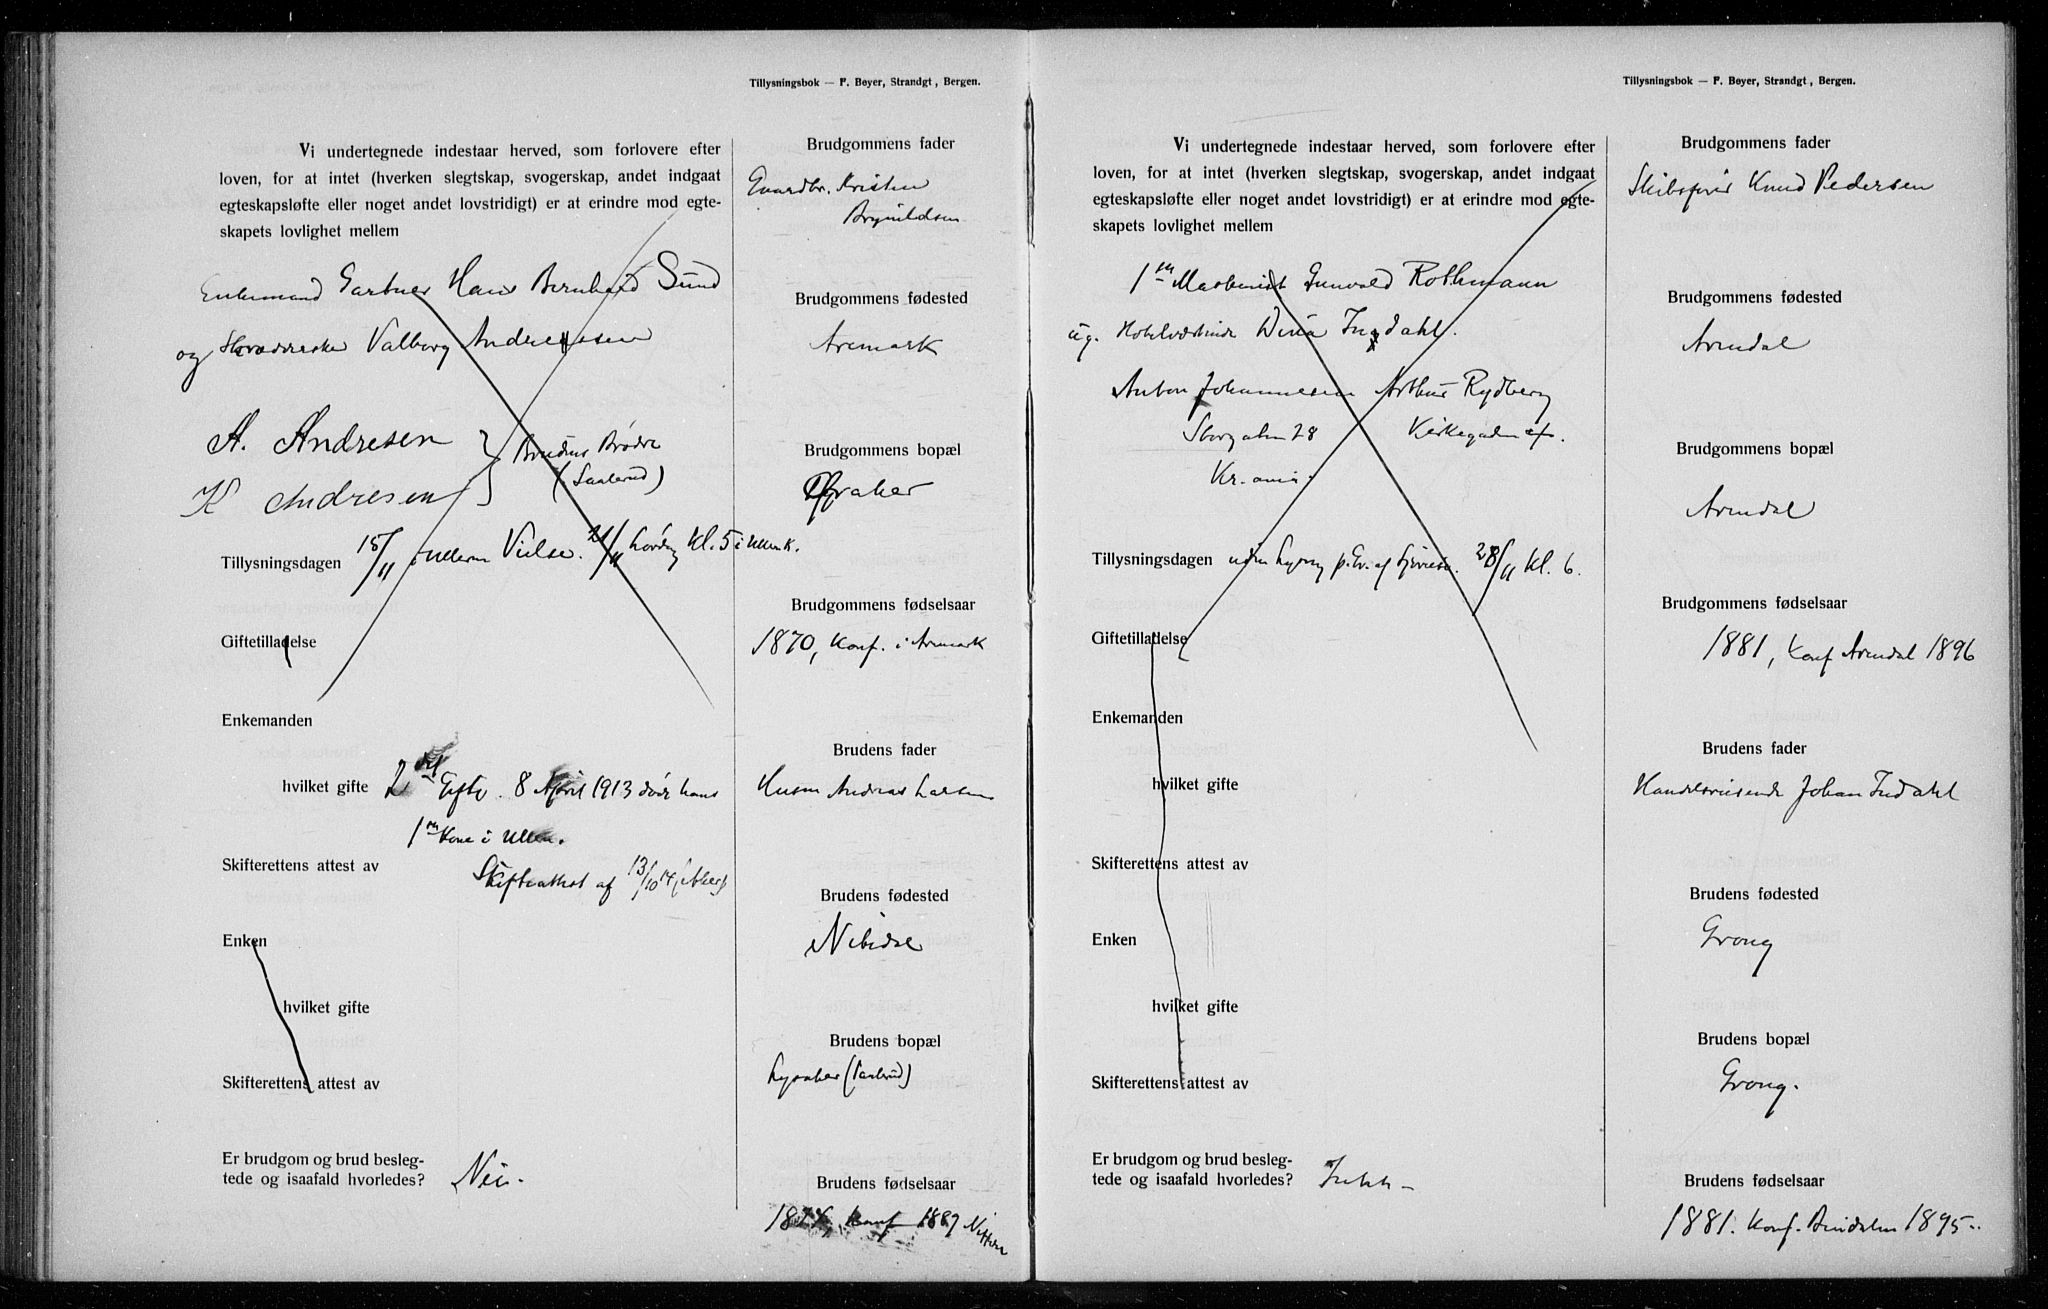 Tillysningsbok — F. Beyer, Strandgt, Bergen.
Vi undertegnede indestaar herved, som forlovere efter
loven, for at intet (hverken slegtskap, svogerskap, andet indgaat
egteskapsløfte eller noget andet lovstridigt) er at erindre mod egte-
skapets lovlighet mellem
Enkemand Gartner Hans Bernhard Sund
og Valborg Andresen
A. Andresen
K Andresen
Brudens Brødre
Tillysningsdagen 15/11 i Ullern Vielse 21/11 Lørdag Kl. 5 i Ullern K.
Giftetilladelse
Enkemanden
hvilket gifte 2det Gifte. 8 April 1913 døde hans
1ste Kone i Ullern.
Skifterettens attest av
Skifteattest af 13/10 14
Enken
hvilket gifte
Skifterettens attest av
Er brudgom og brud besleg-
tede og isaafald hvorledes? Nei.
Brudgommens fader
Gaardbr. Kristen
Brynildsen
Brudgommens fødested
Aremark
Brudgommens bopæl
Brudgommens fødselsaar
1870, Konf. i Aremark
Brudens fader
Husm Andreas Larsen
Brudens fødested
Brudens bopæl
Lysaker
Brudens fødselsaar
Konf 1889
Tillysningsbok — F. Beyer, Strandgt, Bergen.
Vi undertegnede indestaar herved, som forlovere efter
loven, for at intet (hverken slegtskap, svogerskap, andet indgaat
egteskapsløfte eller noget andet lovstridigt) er at erindre mod egte-
skapets lovlighet mellem
1ste Maskinist Gunvald Rothmann
og Dina Indahl.
Anton Johannesen Arthur Rydberg
Storgaten 28 Kirkegaden
Kr.ania.
Tillysningsdagen uden Lysning 28/11 Kl. 6.
Giftetilladelse
Enkemanden
hvilket gifte
Skifterettens attest av
Enken
hvilket gifte
Skifterettens attest av
Er brudgom og brud besleg-
tede og isaafald hvorledes? Ikke
Brudgommens fader
Skibsfører Knud Pedersen
Brudgommens fødested
Arendal
Brudgommens bopæl
Arendal
Brudgommens fødselsaar
1881, Konf Arendal 1896
Brudens fader
Handelsreisende Johan Indahl
Brudens fødested
Grong
Brudens bopæl
Grong.
Brudens fødselsaar
1881. Konf. Bindalen 1895.